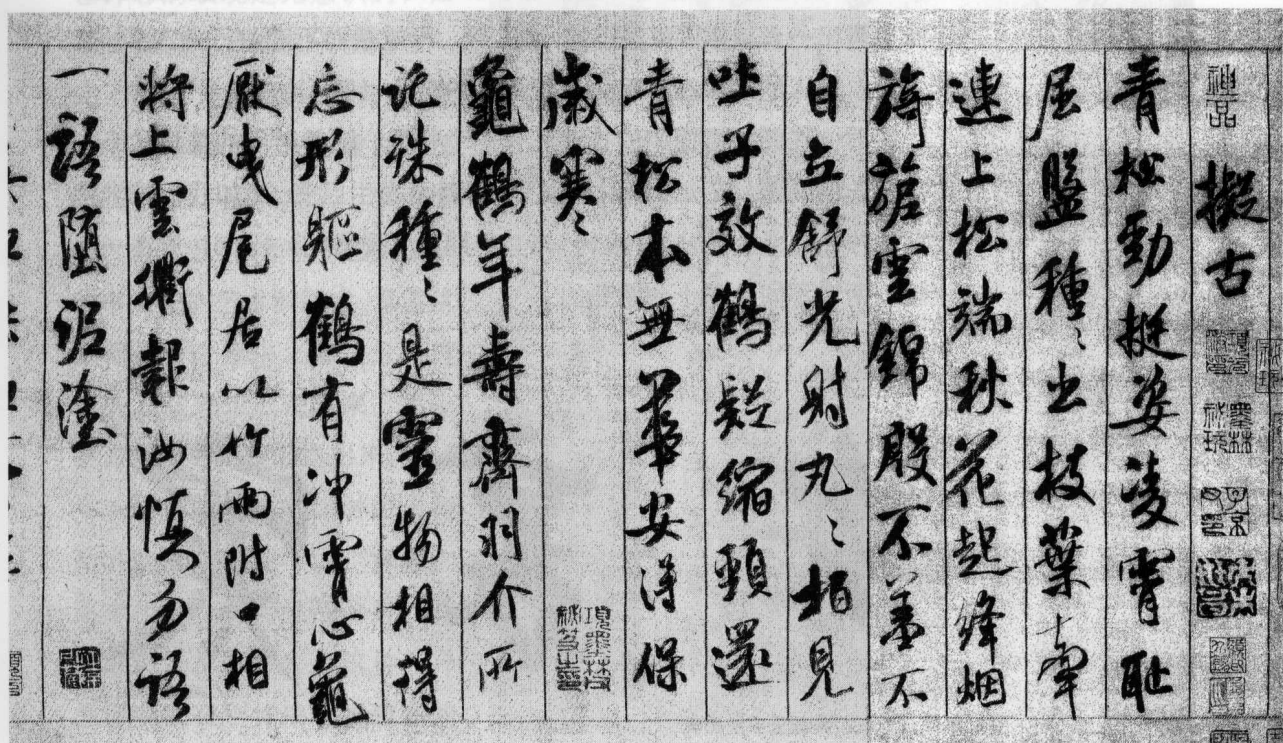 神品 擬古
青松勁挺姿凌霄恥
屈盤種〻出枝葉牽
連上松端秋花起絳烟
旖旎雲錦殷不羞不
自立舒光射丸〻栢見
吐子效鶴疑縮頸還
青松本無華安得保
歲寒〻
龜鶴年壽齊羽介所
託殊種〻是靈物相得
忘形軀鶴有冲霄心龜
厭曳尾居以竹兩附口相
將上雲衢報汝慎勿語
一語墮泥塗